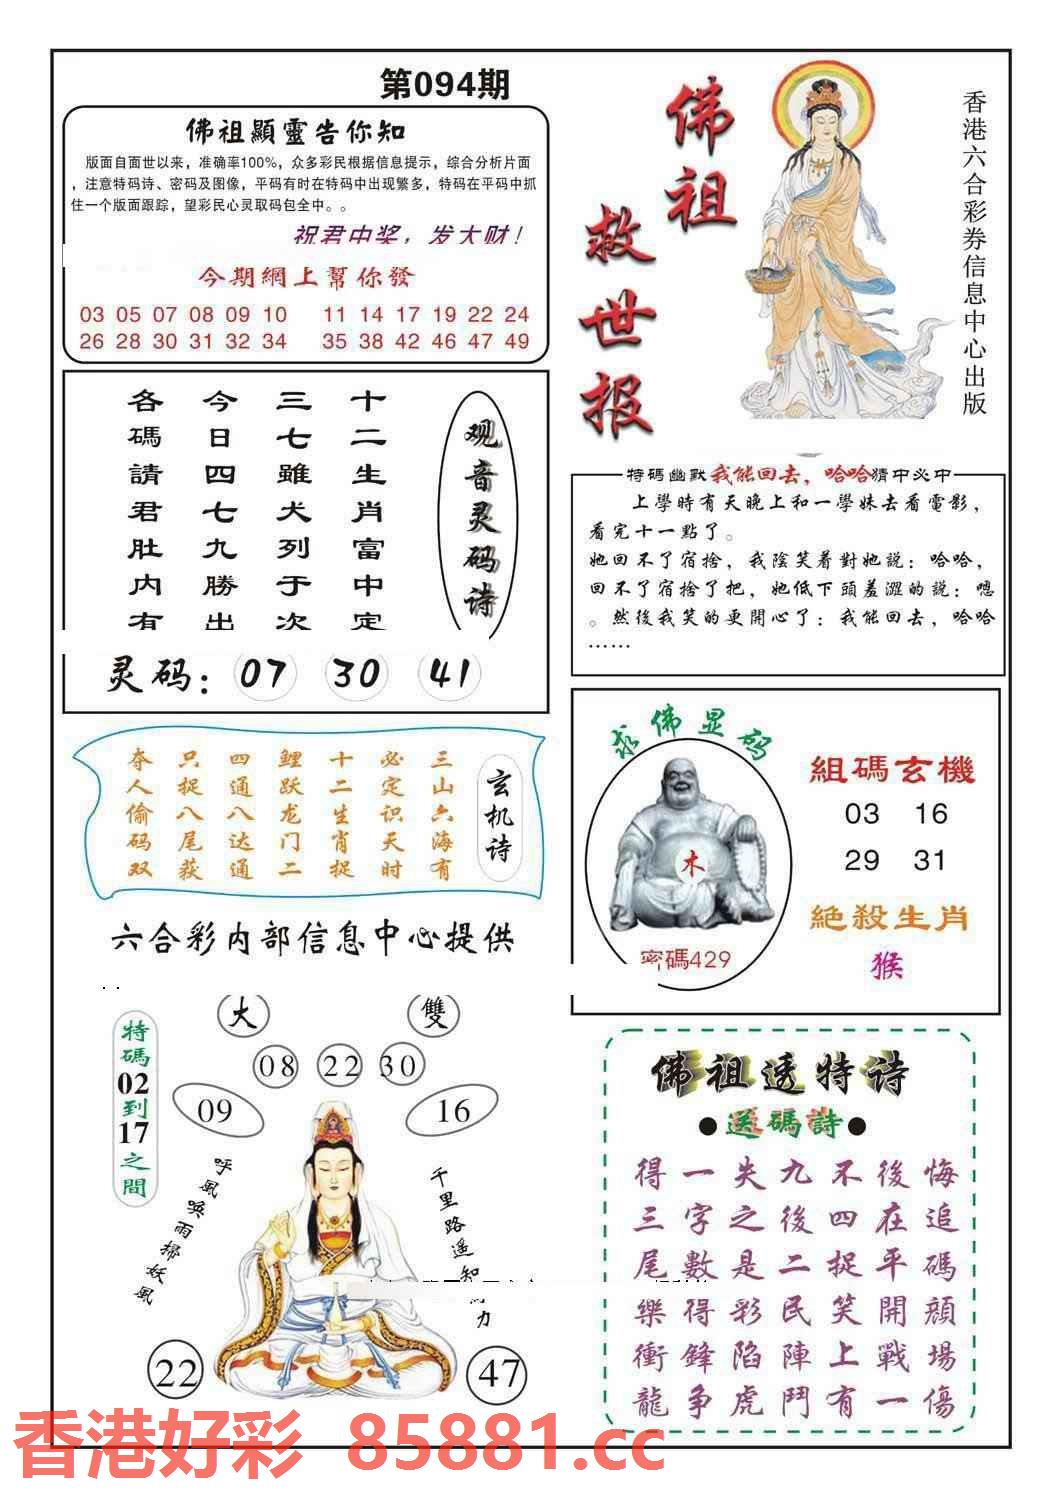 第094期
佛祖顯靈告你知
版面自面世以来，准确率100%，众多彩民根据信息提示，综合分析片面
，注意特码诗、密码及图像，平码有时在特码中出现繁多，特码在平码中抓
住一个版面跟踪，望彩民心灵取码包全中。。
祝君中奖，发大财！
今期網上幫你發
03 05 07 08 09 10 11 14 17 19 22 24
26 28 30 31 32 34 35 38 42 46 47 49
佛祖
救世报
香港六合彩券信息中心出版
观音灵码诗
十二生肖富中定
三七雖犬列于次
今日四七九勝出
各碼請君肚内有
灵码：07 30 41
特碼幽默我能回去，哈哈猜中必中
上學時有天晚上和一學妹去看電影，
看完十一點了。
她回不了宿捨，我陰笑着對她説：哈哈，
回不了宿捨了把，她低下頭羞澀的説：嗯
。然後我笑的更開心了：我能回去，哈哈
……
玄机诗
三山六海有
必定识天时
十二生肖捉
鲤跃龙门二
四通八达通
只捉八尾获
夺人偷码双
求佛显码
木
密碼429
組碼玄機
03 16
29 31
絶殺生肖
猴
六合彩内部信息中心提供
大 雙
08 22 30
09 16
特碼02到17之間
呼風喚雨掃妖風
千里路遥知 力
22 47
佛祖透特诗
●送碼詩●
得一失九不後悔
三字之後四在追
尾數是二捉平碼
樂得彩民笑開顔
衝鋒陷陣上戰場
龍争虎鬥有一傷
香港好彩 85881.cc